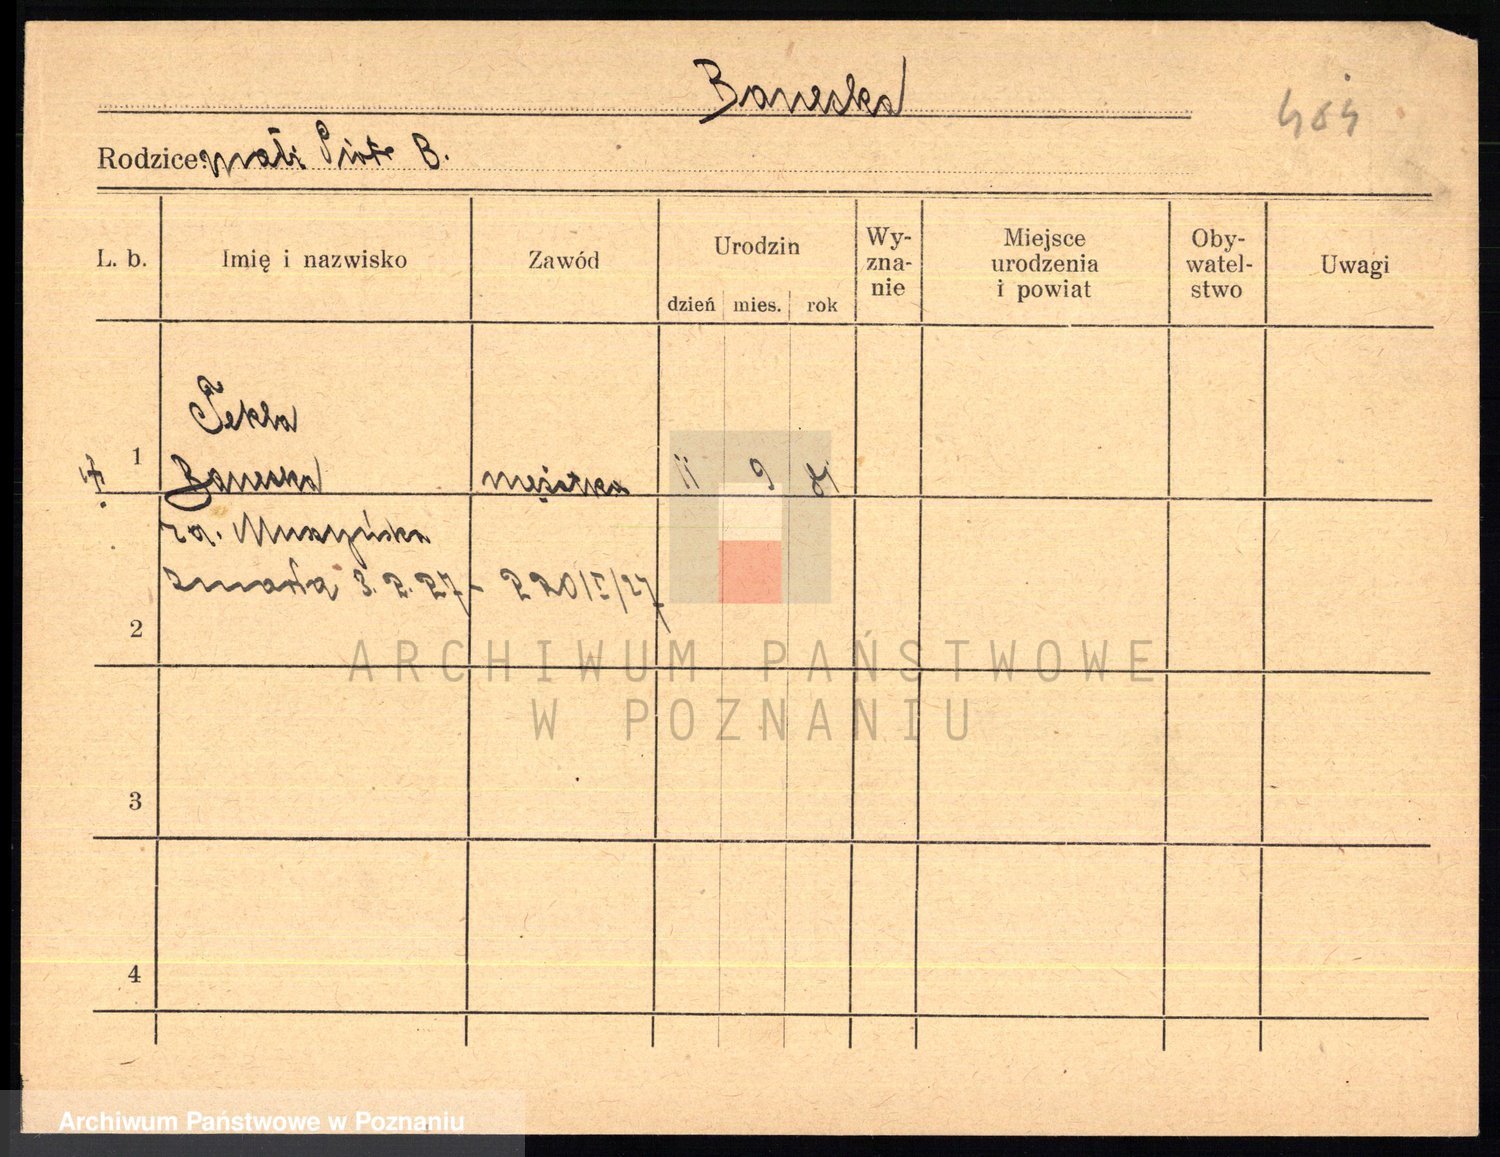 Baneska
484
Rodzice: małż Piotr B.
L. b.
Imię i nazwisko
Zawód
Urodzin
dzień mies. rok
Wy-
zna-
nie
Miejsce
urodzenia
i powiat
Oby-
watel-
stwo
Uwagi
Tekla
1 Baneska mężatka 11 9
zmarła 3.2.27 - 220/I/27
2
ARCHIWUM PAŃSTWOWE
W POZNANIU
3
4
Archiwum Państwowe w Poznaniu